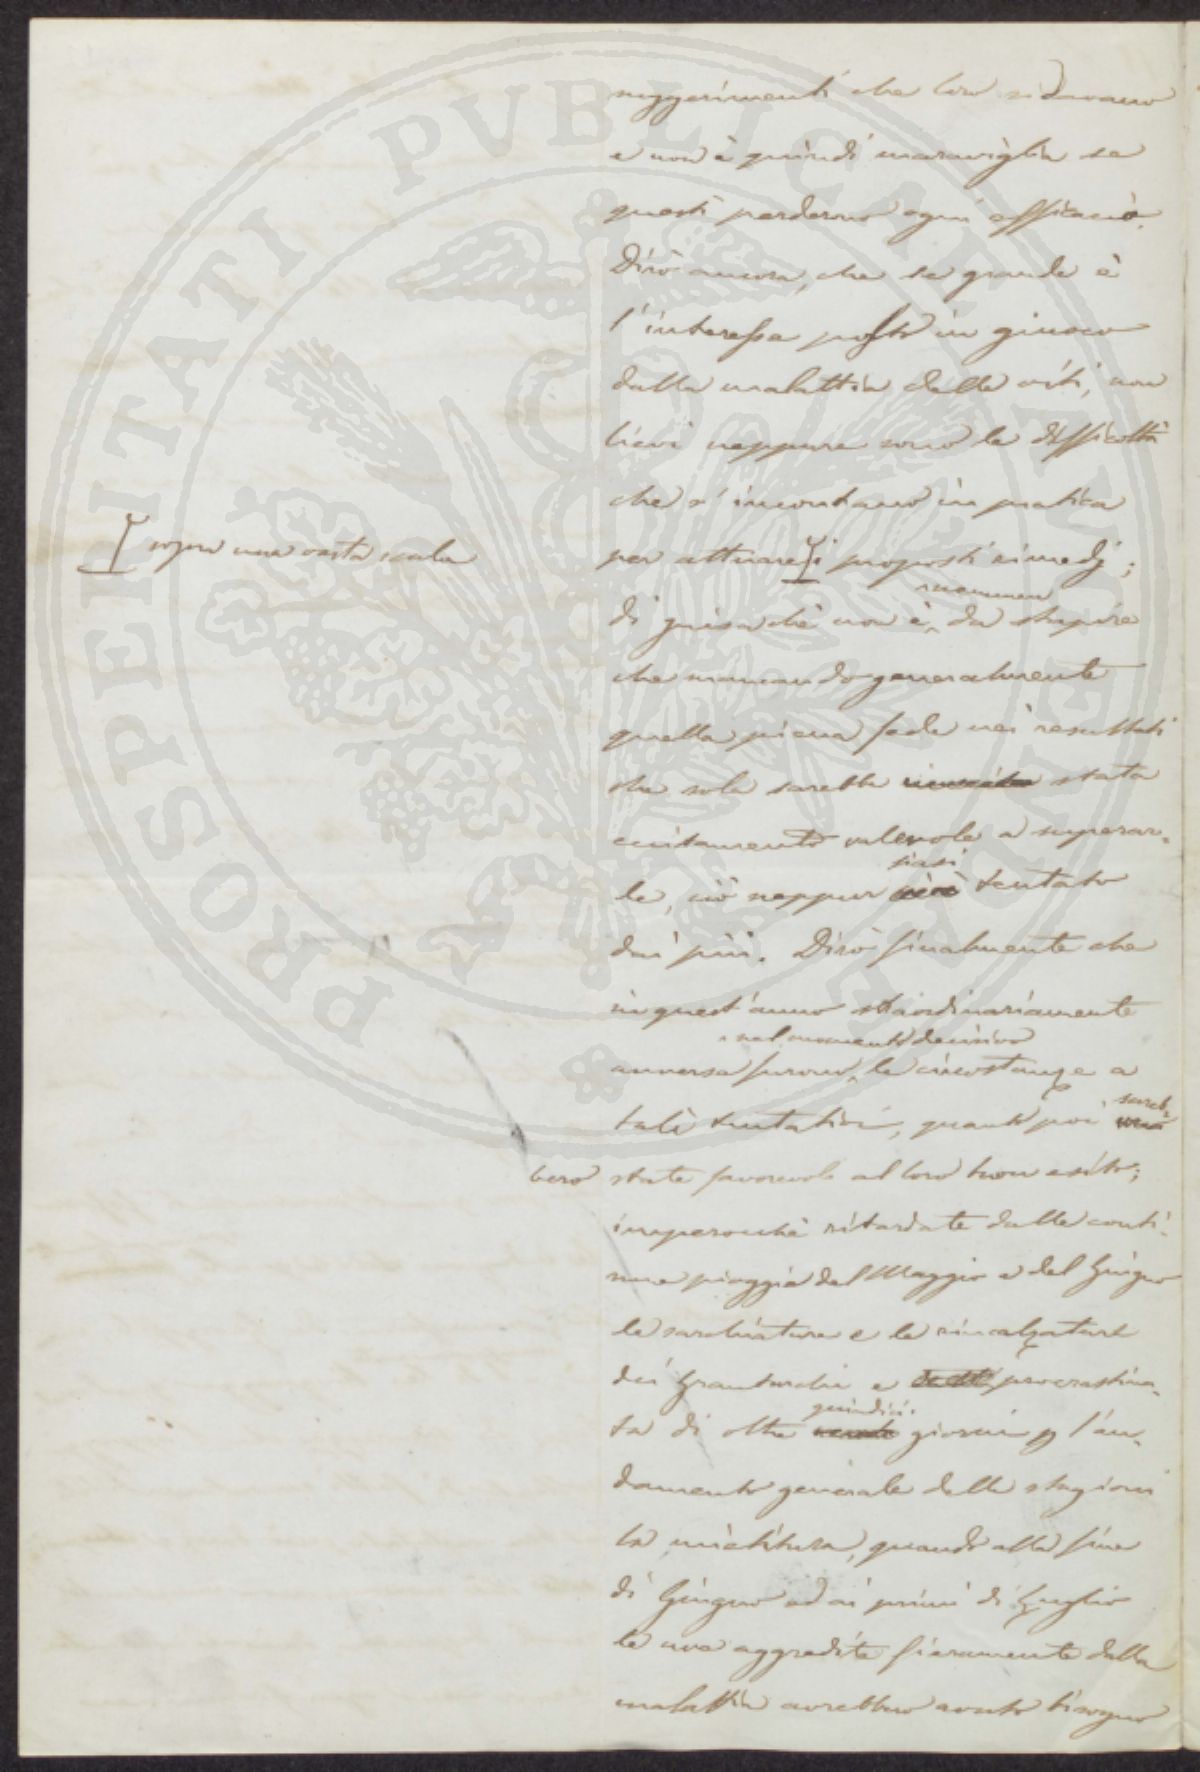 suggerimenti che loro si davano
e non è quindi maraviglia se
questi perderono ogni efficacia.
Dirò ancora, che se grande è
l'interesse posto in giuoco
dalla malattia delle viti, non
lievi neppure sono le difficoltà
che s'incontrano in pratica
sopra una vasta scala
per attuare i proposti rimedj;
nemmeno
di guisa chè non è, da stupire
che mancando generalmente
quella piena fede nei resultati
che sola sarebbe stata
eccitamento valevole a superar-
siasi
le, ciò neppur tentato
dai più. Dirò finalmente che
in quest'anno straordinariamente
nel momento decisivo
avverse furono le circostanze a
sareb-
tali tentativi, quanto poi
bero state favorevoli al loro buon esito;
imperocchè ritardate dalle conti-
nue pioggie del Maggio e del Giugno
le sarchiature e le rincalzature
dei Granturchi e procrastina-
quindici
ta di oltre giorni p l'an-
damento generale delle stagioni
la mietitura, quando alla fine
di Giugno ed ai primi di Luglio
le uve aggredite fieramente dalla
malattia avrebbero avuto bisogno
PROSPERITATI PVBLICAE AVGENDAE